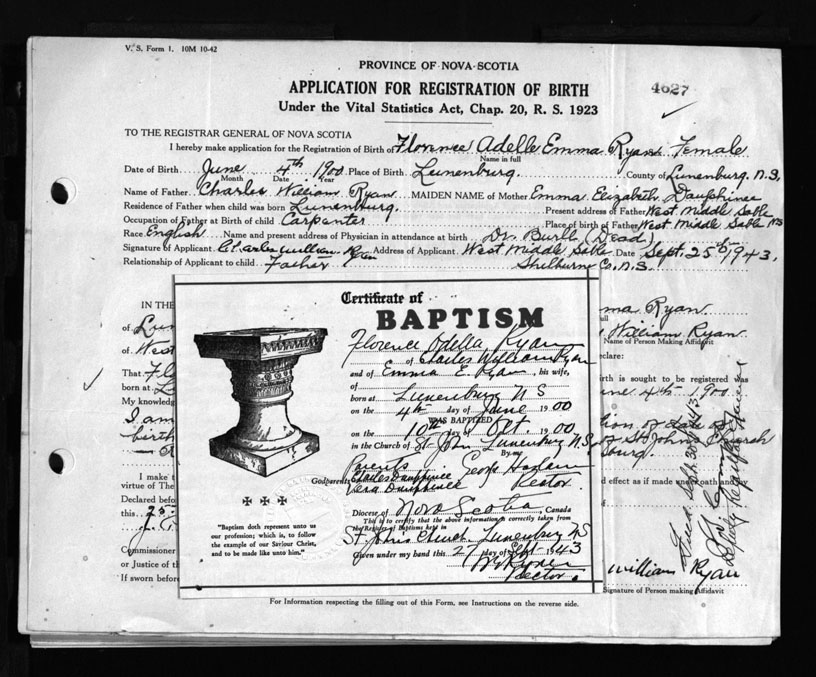 V. S. Form 1. 10M 10-42
PROVINCE OF NOVA SCOTIA
APPLICATION FOR REGISTRATION OF BIRTH
4627
Under the Vital Statistics Act, Chap. 20, R. S. 1923
TO THE REGISTRAR GENERAL OF NOVA SCOTIA
I hereby make application for the Registration of Birth of Florence Adelle Emma Ryan Female
Name in full
Date of Birth June 4th 1900 Place of Birth Lunenburg. County of Lunenburg N.S.
Month Date Year
Name of Father Charles William Ryan MAIDEN NAME of Mother Emma Elizabeth Dauphinee
Residence of Father when child was born Lunenburg. Present address of Father West Middle Sable
Occupation of Father at Birth of child Carpenter Place of birth of Father West Middle Sable NS
Race English Name and present address of Physician in attendance at birth Dr. Burll (Dead)
Signature of Applicant Charles William Ryan Address of Applicant West Middle Sable Date Sept. 25th 1943.
Relationship of Applicant to child Father Shelburne Co. N.S.
IN THE
of Lun
of West
That Fl
born at L
My knowledg
I am
birth
I make t
virtue of The
Declared before
this 25
Commissioner
or Justice of th
If sworn before
Certificate of
BAPTISM
Florence Odella Ryan
of Charles William Ryan
and of Emma E. Ryan, his wife,
of
born at Lunenburg N S
on the 4th day of June 1900
WAS BAPTIZED
on the 10th day of Oct. 1900
in the Church of St. John Lunenburg N.S.
By me,
Parents George Haslam
Godparents Charles Dauphinee Rector
Vera Dauphinee
Diocese of Nova Scotia, Canada
This is to certify that the above information is correctly taken from
the Register of Baptisms held in
St. Johns Church Lunenburg NS
Given under my hand this 27 day of Sept 1943
Rector.
"Baptism doth represent unto us
our profession; which is, to follow
the example of our Saviour Christ,
and to be made like unto him."
mma Ryan.
full
William Ryan
Name of Person Making Affidavit
eclare:
irth is sought to be registered was
une 4th 1900
tion of date of
St Johns Church
bourg.
d effect as if made under oath and by
of
William Ryan
Signature of Person making Affidavit
Filed Sept. 30th 1943
Deputy Registrar General
For Information respecting the filling out of this Form, see Instructions on the reverse side.